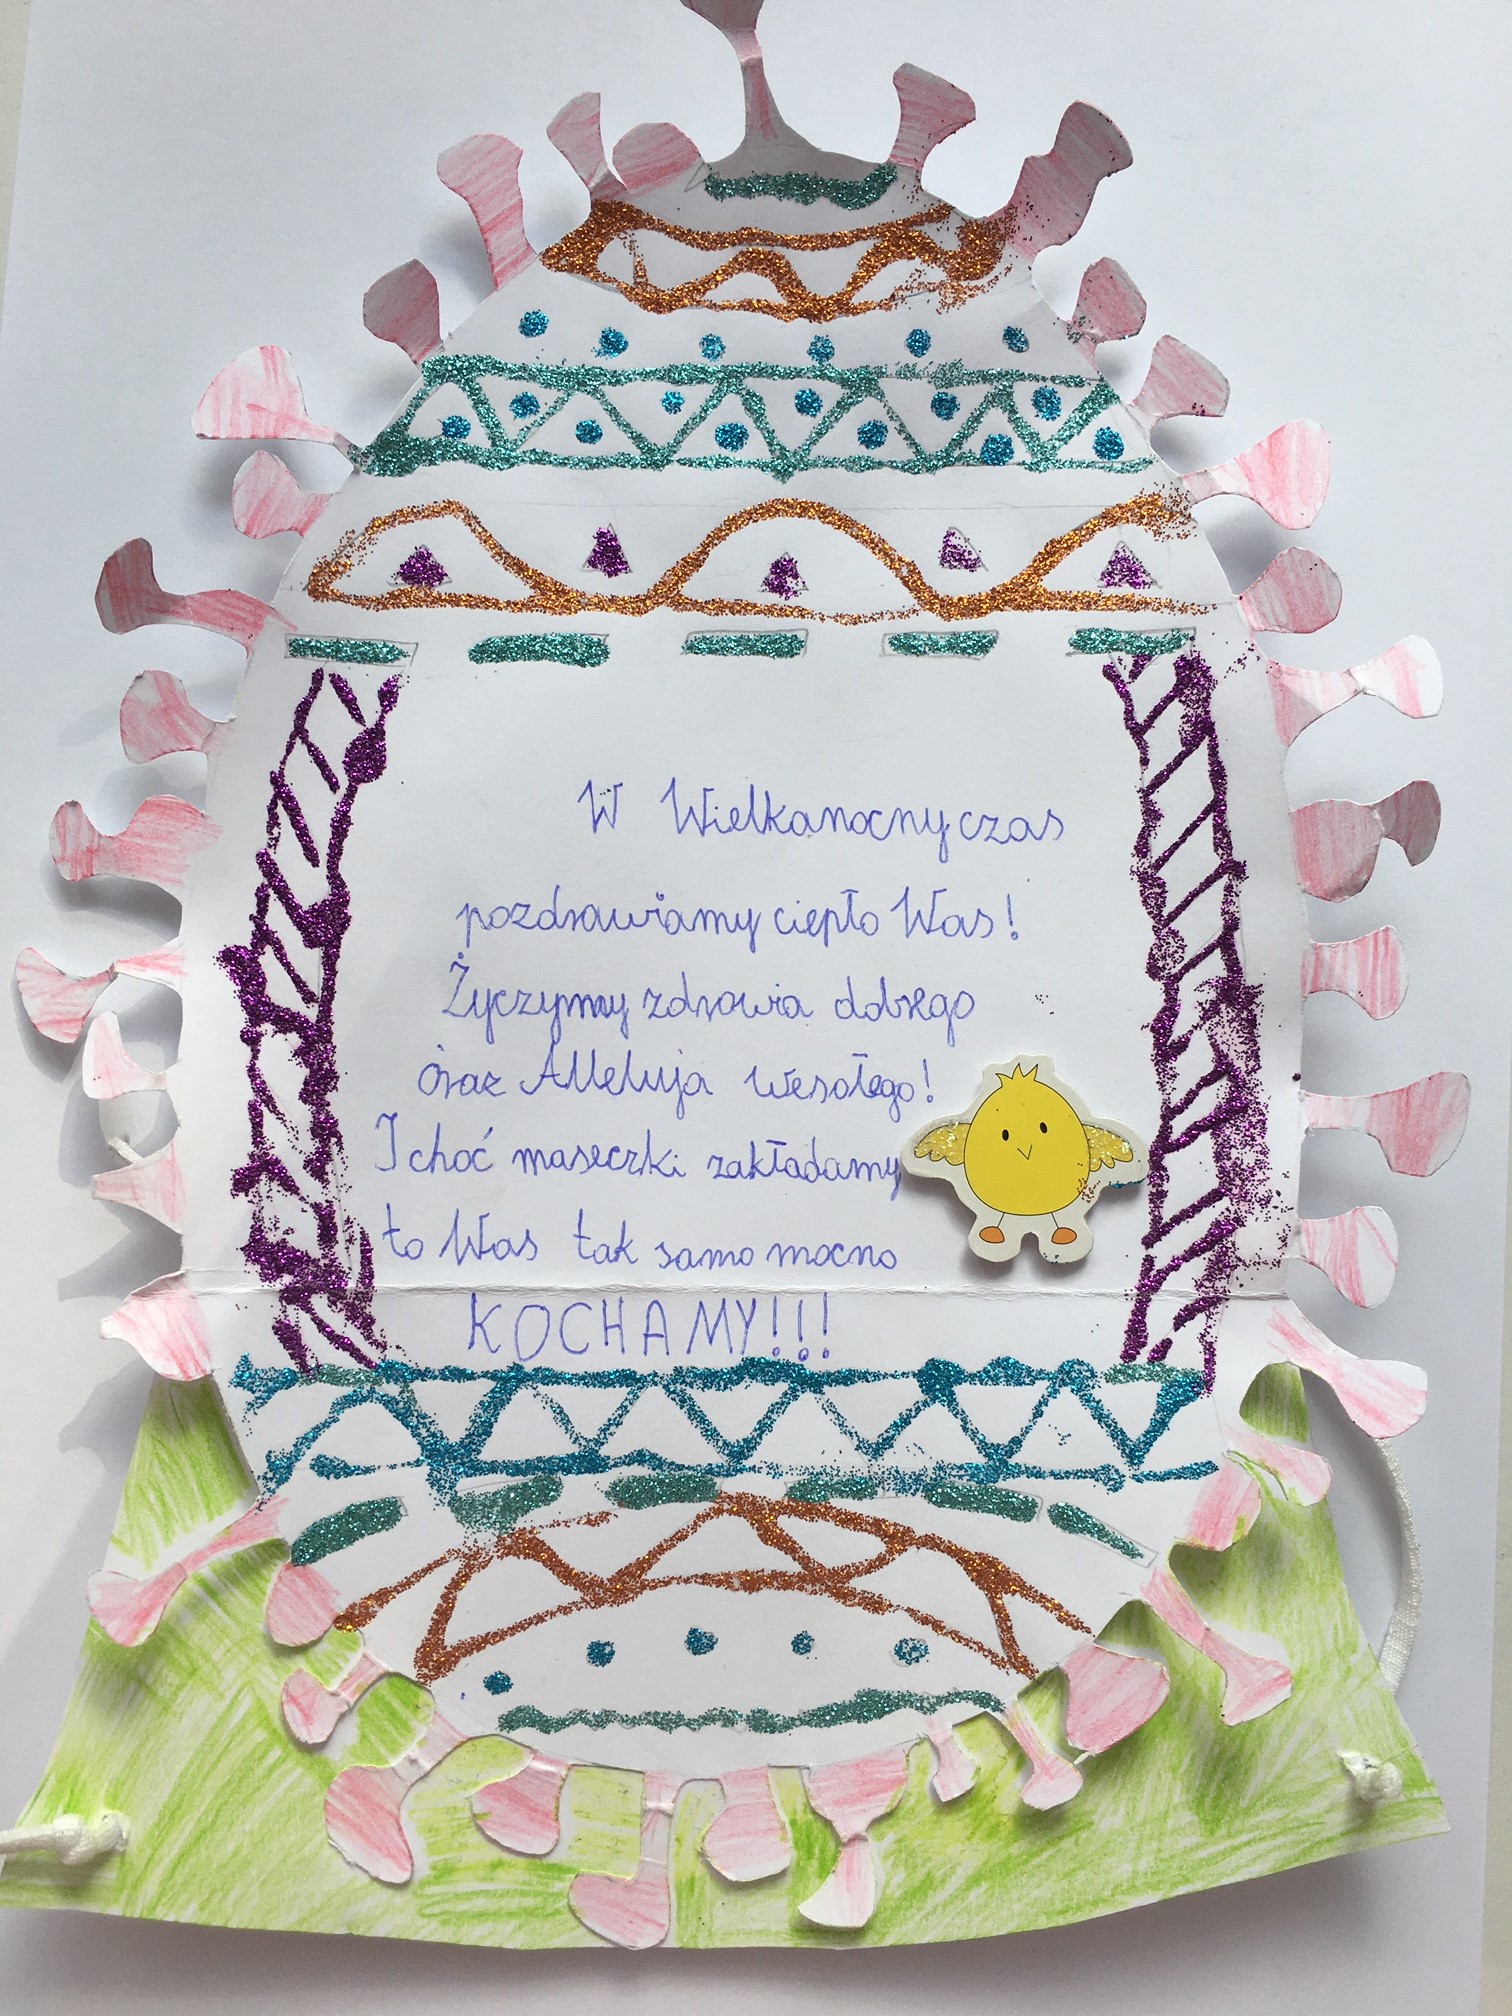 W Wielkanocny czas
pozdrawiamy ciepło Was!
Życzymy zdrowia dobrego
oraz Alleluja wesołego!
I choć maseczki zakładamy
to Was tak samo mocno
KOCHAMY!!!